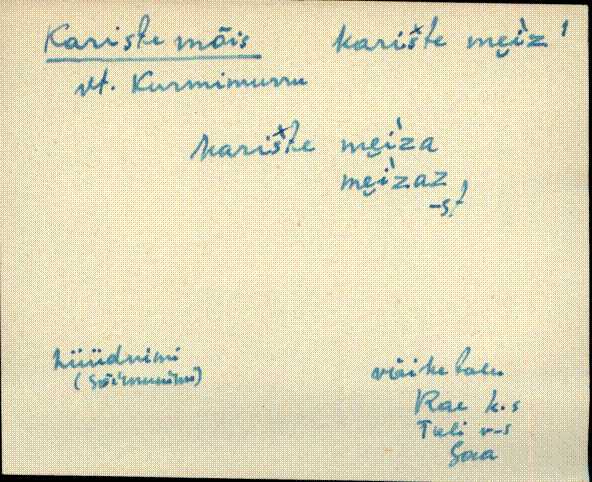 Kariste mõis karište mei̮z
vt. Kurmimurru
karište mei̮za
mei̮zaz
-s,t
hüüdnimi
(sõimunimi)
väike talu
Rae k.s
Tuli v-s
Saa